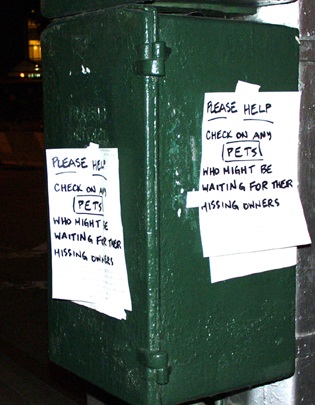 PLEASE HELP
CHECK ON ANY
PETS
WHO MIGHT BE
WAITING FOR THER
MISSING OWNERS
PLEASE HELP
CHECK ON ANY
PETS
WHO MIGHT BE
WAITING FOR THER
MISSING OWNERS